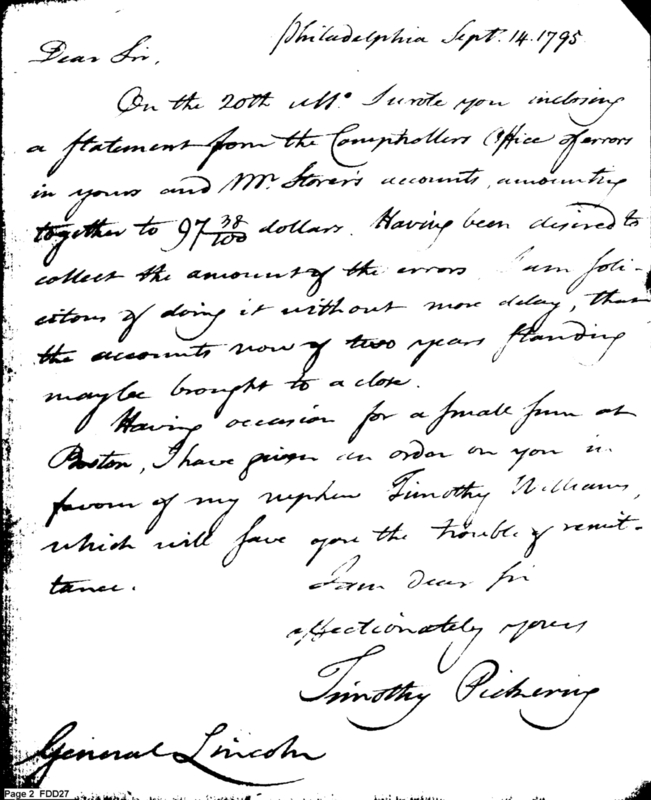 Philadelphia Sept. 14. 1795
Dear Sir,
On the 20th ulto. I wrote you inclosing
a statement from the Comptrollers Office of errors
in yours and Mr. Storer's accounts, amounting
together to 97 38/100 dollars. Having been desired to
collect the amount of the errors I am soli-
citous of doing it without more delay, that
the accounts now of two years standing
may be brought to a close.
Having occasion for a small sum at
Boston, I have given an order on you in
favour of my nephew Timothy Williams,
which will save you the trouble of remit-
tance.
I am dear sir
affectionately yours
Timothy Pickering
General Lincoln
Page 2 FDD27